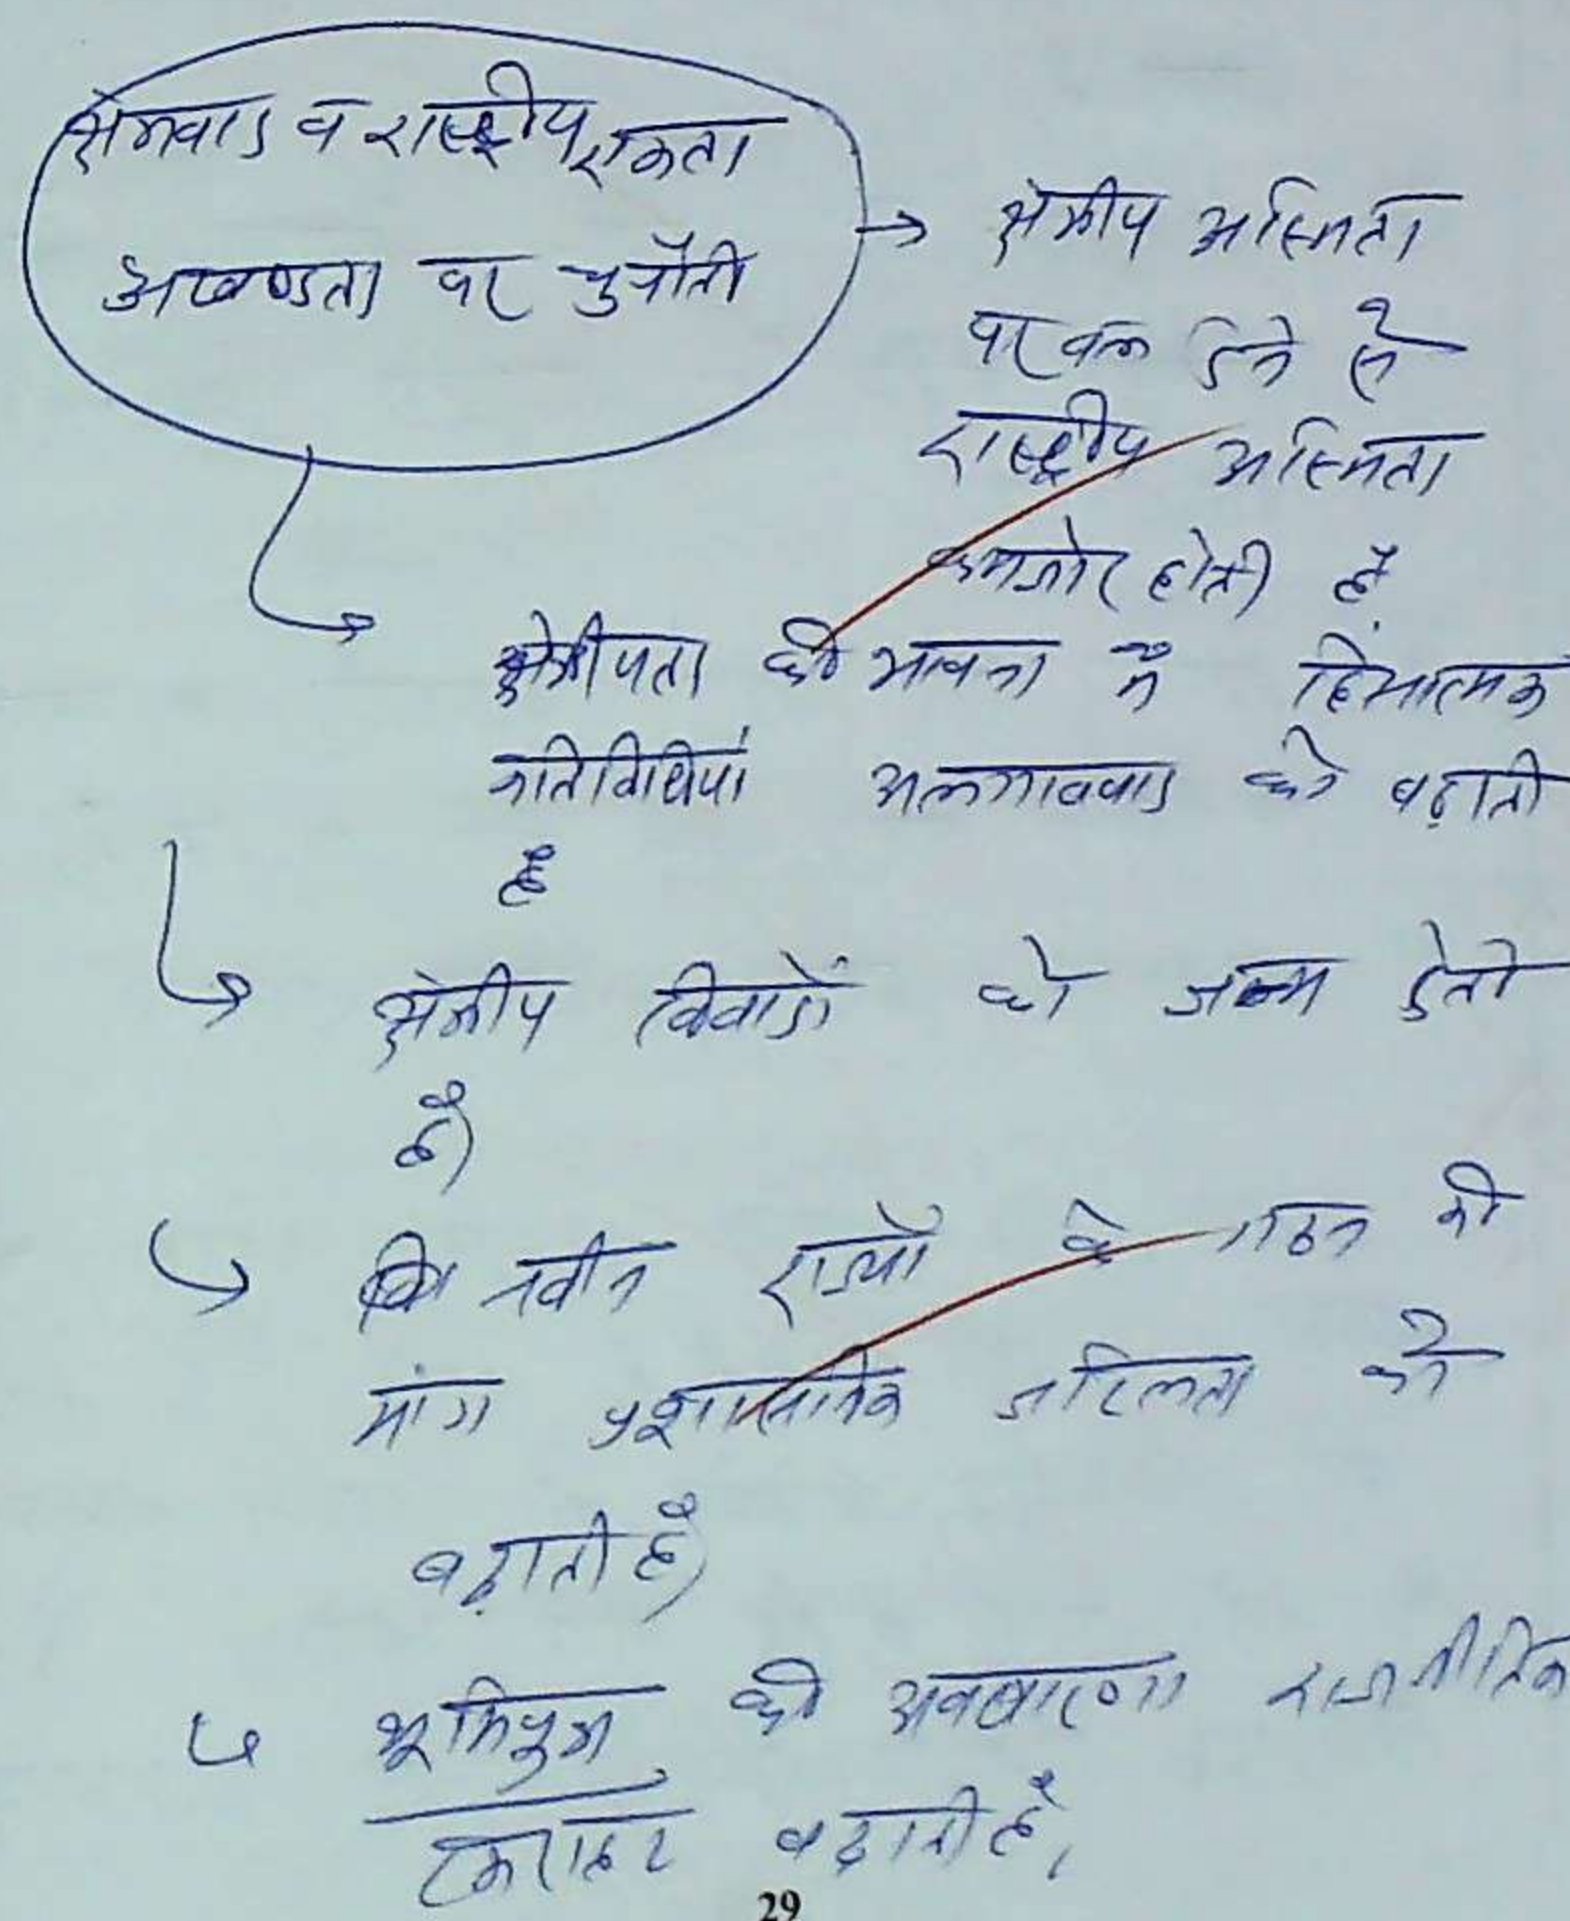 क्षेत्रवाद व राष्ट्रीय एकता
अखण्डता पर चुनौती
→ क्षेत्रीय अस्मिता
पर बल देने से
राष्ट्रीय अस्मिता
कमजोर होती है
क्षेत्रीयता की भावना में हिंसात्मक
गतिविधियां अलगाववाद को बढ़ाती
है
क्षेत्रीय विवादों को जन्म देती
है।
नवीन राज्यों के गठन की
मांग प्रशासनिक जटिलता को
बढ़ाती है।
भूमिपुत्र की अवधारणा राजनीतिक
टकराहट बढ़ाती है,
29